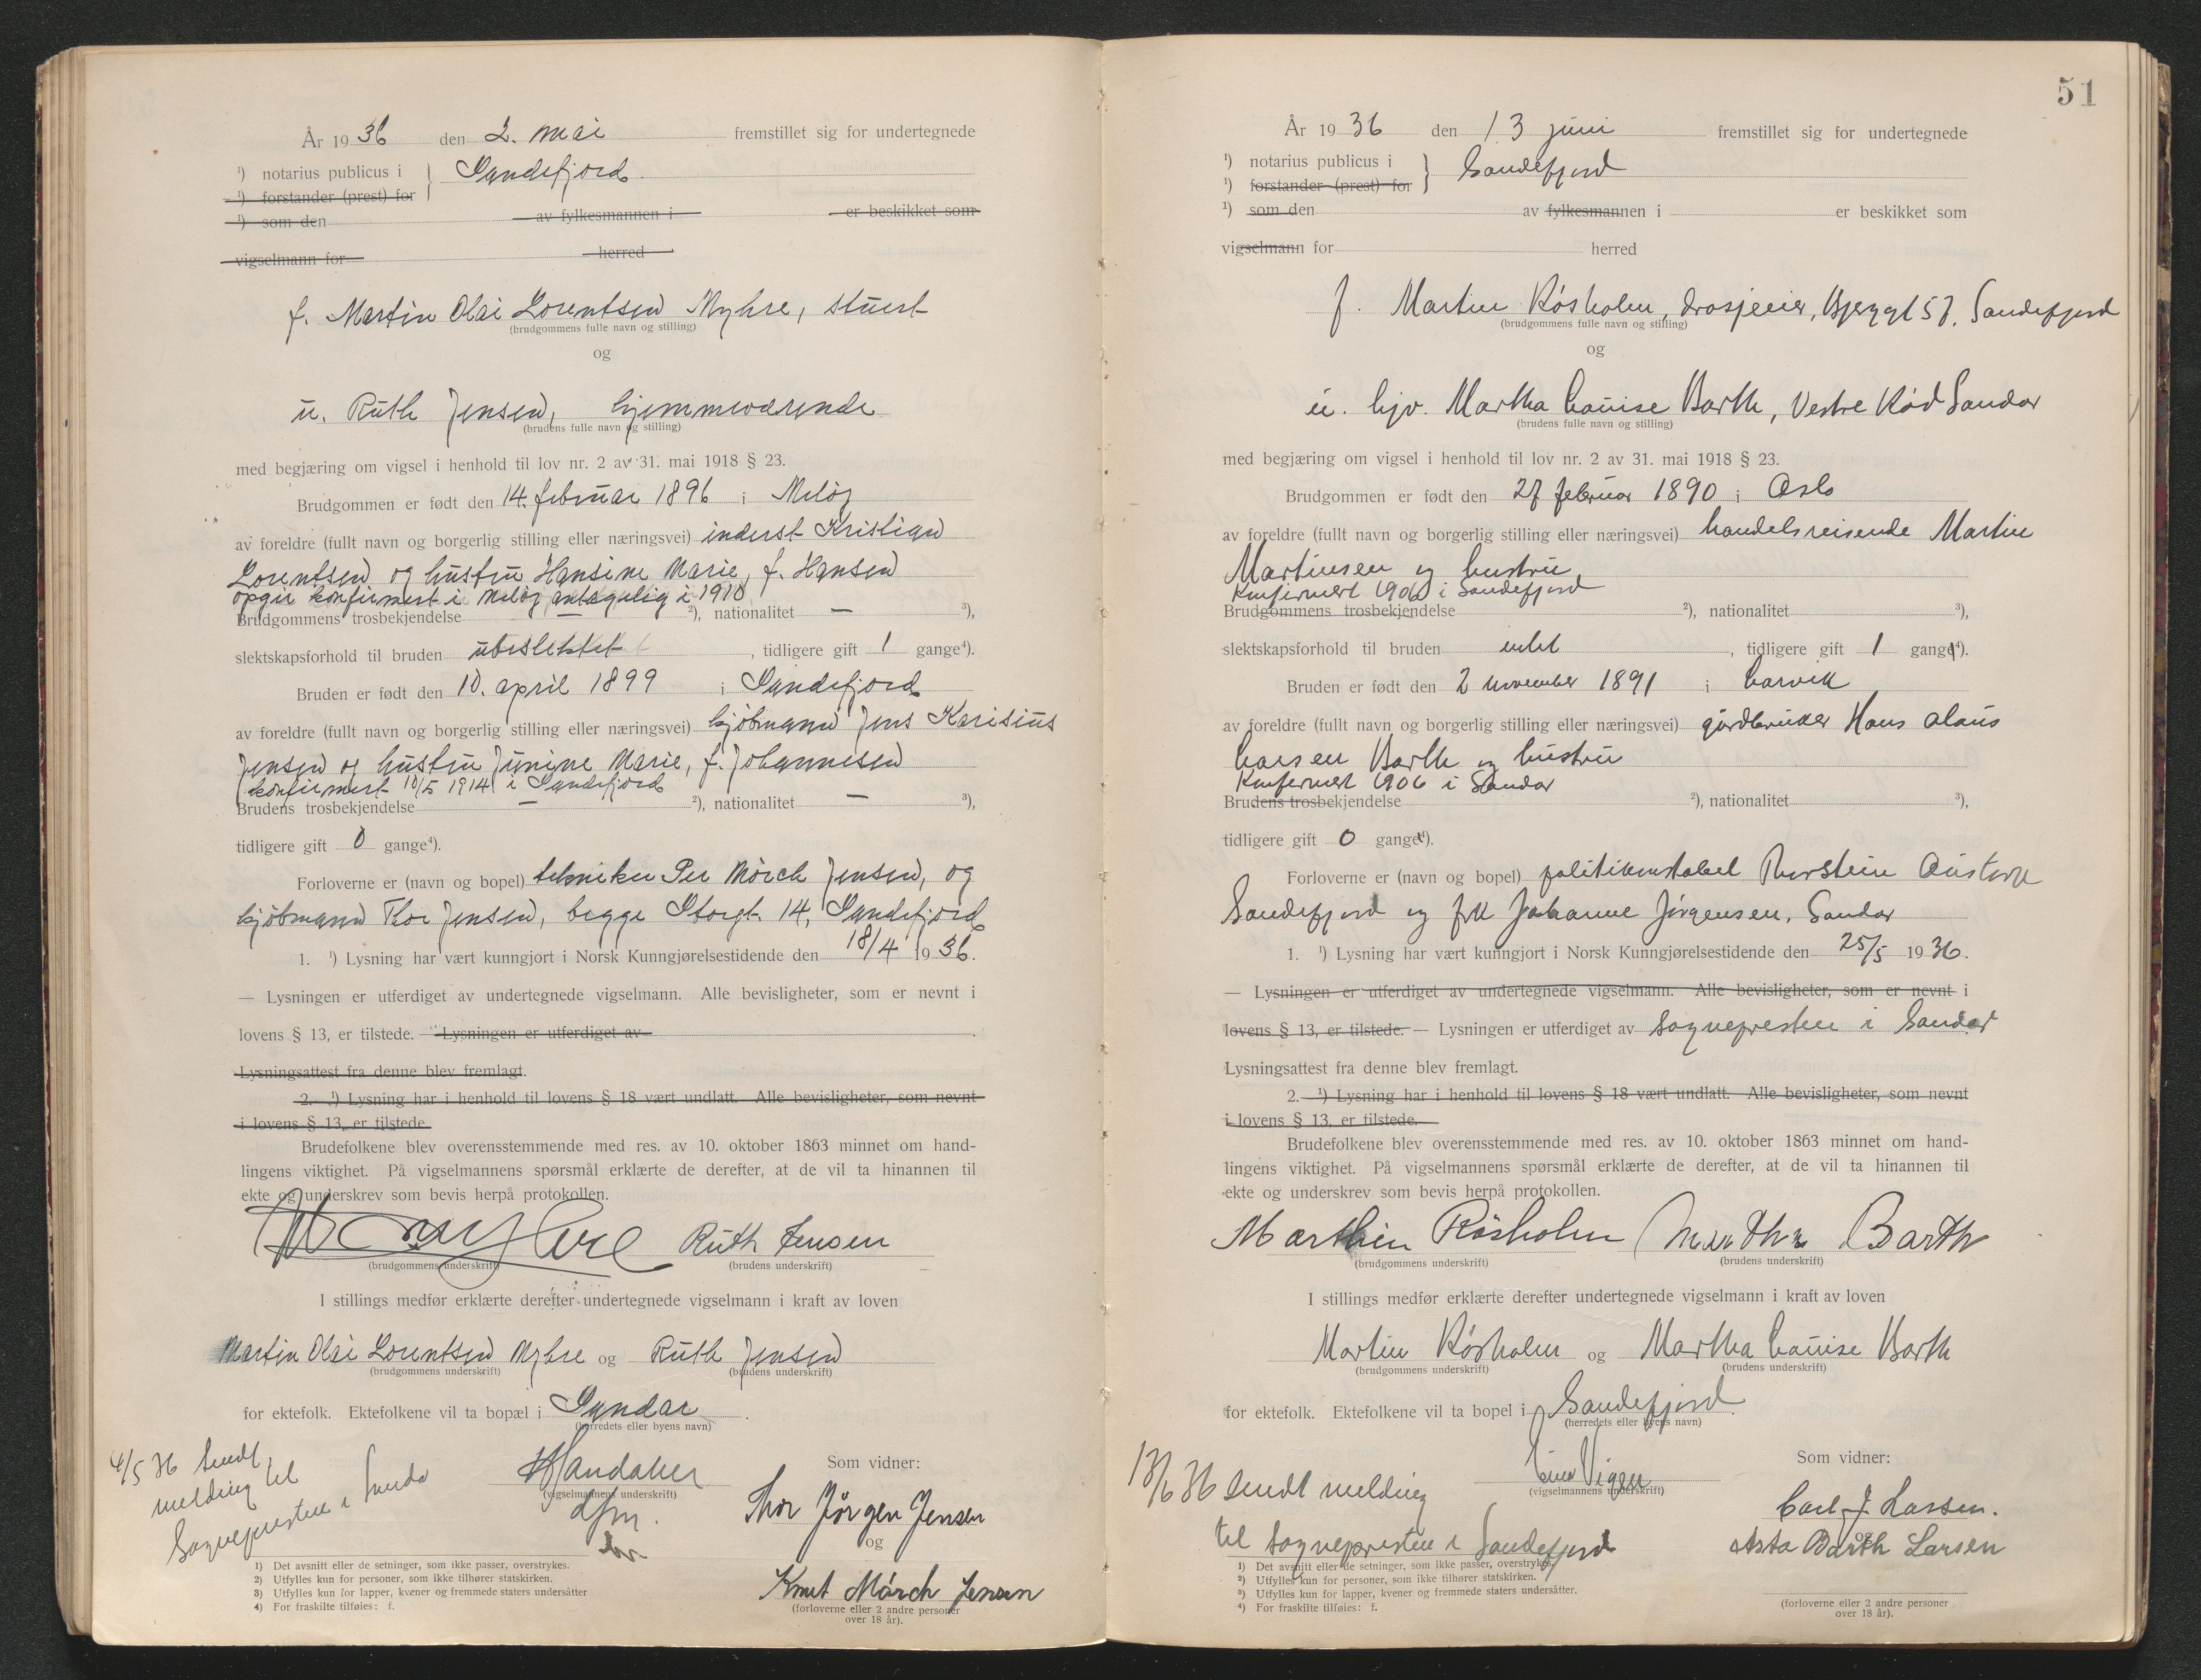 År 1936 den 2. mai fremstillet sig for undertegnede
¹) notarius publicus i } Sandefjord
¹) forstander (prest) for
¹) som den av fylkesmannen i er beskikket som
vigselmann for herred
f. Martin Olai Lorentsen Myhre, stuert
(brudgommens fulle navn og stilling)
og
u. Ruth Jensen, hjemmeværende
(brudens fulle navn og stilling)
med begjæring om vigsel i henhold til lov nr. 2 av 31. mai 1918 § 23.
Brudgommen er født den 14. februar 1896 i Meløy
av foreldre (fullt navn og borgerlig stilling eller næringsvei) inderst Kristian
Lorentsen og hustru Hansine Marie, f. Hansen
opgir konfirmert i Meløy antagelig i 1910
Brudgommens trosbekjendelse — ²), nationalitet — ³),
slektskapsforhold til bruden ubeslektet, tidligere gift 1 gange⁴).
Bruden er født den 10. april 1899 i Sandefjord
av foreldre (fullt navn og borgerlig stilling eller næringsvei) kjøbmann Jens Karisius
Jensen og hustru Junine Marie, f. Johannesen
konfirmert 10/5 1914 i Sandefjord
Brudens trosbekjendelse — ²), nationalitet — ³),
tidligere gift 0 gange⁴).
Forloverne er (navn og bopel) tekniker Per Mørch Jensen, og
kjøbmann Thor Jensen, begge Storgt. 14, Sandefjord
1. ¹) Lysning har vært kunngjort i Norsk Kunngjørelsestidende den 18/4 1936.
— Lysningen er utferdiget av undertegnede vigselmann. Alle bevisligheter, som er nevnt i
lovens § 13, er tilstede. — Lysningen er utferdiget av
Lysningsattest fra denne blev fremlagt.
2. ¹) Lysning har i henhold til lovens § 18 vært undlatt. Alle bevisligheter, som nevnt
i lovens § 13, er tilstede.
Brudefolkene blev overensstemmende med res. av 10. oktober 1863 minnet om hand-
lingens viktighet. På vigselmannens spørsmål erklærte de derefter, at de vil ta hinannen til
ekte og underskrev som bevis herpå protokollen.
Myhre Ruth Jensen
(brudgommens underskrift) (brudens underskrift)
I stillings medfør erklærte derefter undertegnede vigselmann i kraft av loven
Martin Olai Lorentsen Myhre og Ruth Jensen
(brudgommens underskrift) (brudens underskrift)
for ektefolk. Ektefolkene vil ta bopæl i Sandar.
(herredets eller byens navn)
4/5 36 sendt
melding til
Sognepresten i Sandar
(vigselmannens underskrift)
Som vidner:
Thor Jørgen Jensen
og
Knut Mørch Jensen
(forloverne eller 2 andre personer
over 18 år).
1) Det avsnitt eller de setninger, som ikke passer, overstrykes.
2) Utfylles kun for personer, som ikke tilhører statskirken.
3) Utfylles kun for lapper, kvener og fremmede staters undersåtter
4) For fraskilte tilføies: f.
51
År 1936 den 13 juni fremstillet sig for undertegnede
¹) notarius publicus i } Sandefjord
¹) forstander (prest) for
¹) som den av fylkesmannen i er beskikket som
vigselmann for herred
f. Martin Røsholm, drosjeeier, Bjerggt 57. Sandefjord
(brudgommens fulle navn og stilling)
og
u. hjv. Martha Louise Barth, Vestre Rød Sandar
(brudens fulle navn og stilling)
med begjæring om vigsel i henhold til lov nr. 2 av 31. mai 1918 § 23.
Brudgommen er født den 27 februar 1890 i Oslo
av foreldre (fullt navn og borgerlig stilling eller næringsvei) handelsreisende Martin
Martinsen og hustru
Konfirmert 1906 i Sandefjord
Brudgommens trosbekjendelse ²), nationalitet ³),
slektskapsforhold til bruden intet, tidligere gift 1 gange⁴).
Bruden er født den 2 november 1891 i Larvik
av foreldre (fullt navn og borgerlig stilling eller næringsvei) gårdbruker Hans Olaus
Larsen Barth og hustru
Konfirmert 1906 i Sandar
Brudens trosbekjendelse ²), nationalitet ³),
tidligere gift 0 gange⁴).
Forloverne er (navn og bopel) politikonstabel Thorstein
Sandefjord og frk Johanne Jørgensen, Sandar
1. ¹) Lysning har vært kunngjort i Norsk Kunngjørelsestidende den 25/5 1936.
— Lysningen er utferdiget av undertegnede vigselmann. Alle bevisligheter, som er nevnt i
lovens § 13, er tilstede. — Lysningen er utferdiget av Sognepresten i Sandar
Lysningsattest fra denne blev fremlagt.
2. ¹) Lysning har i henhold til lovens § 18 vært undlatt. Alle bevisligheter, som nevnt
i lovens § 13, er tilstede.
Brudefolkene blev overensstemmende med res. av 10. oktober 1863 minnet om hand-
lingens viktighet. På vigselmannens spørsmål erklærte de derefter, at de vil ta hinannen til
ekte og underskrev som bevis herpå protokollen.
Marthin Røsholm Martha Barth
(brudgommens underskrift) (brudens underskrift)
I stillings medfør erklærte derefter undertegnede vigselmann i kraft av loven
Martin Røsholm og Martha Louise Barth
(brudgommens underskrift) (brudens underskrift)
for ektefolk. Ektefolkene vil ta bopel i Sandefjord
(herredets eller byens navn)
13/6 36 sendt melding
til Sognepresten i Sandefjord
Vigen
(vigselmannens underskrift)
Som vidner:
Carl J. Larsen.
og
Asta Barth Larsen
(forloverne eller 2 andre personer
over 18 år).
1) Det avsnitt eller de setninger, som ikke passer, overstrykes.
2) Utfylles kun for personer, som ikke tilhører statskirken.
3) Utfylles kun for lapper, kvener og fremmede staters undersåtter.
4) For fraskilte tilføies: f.